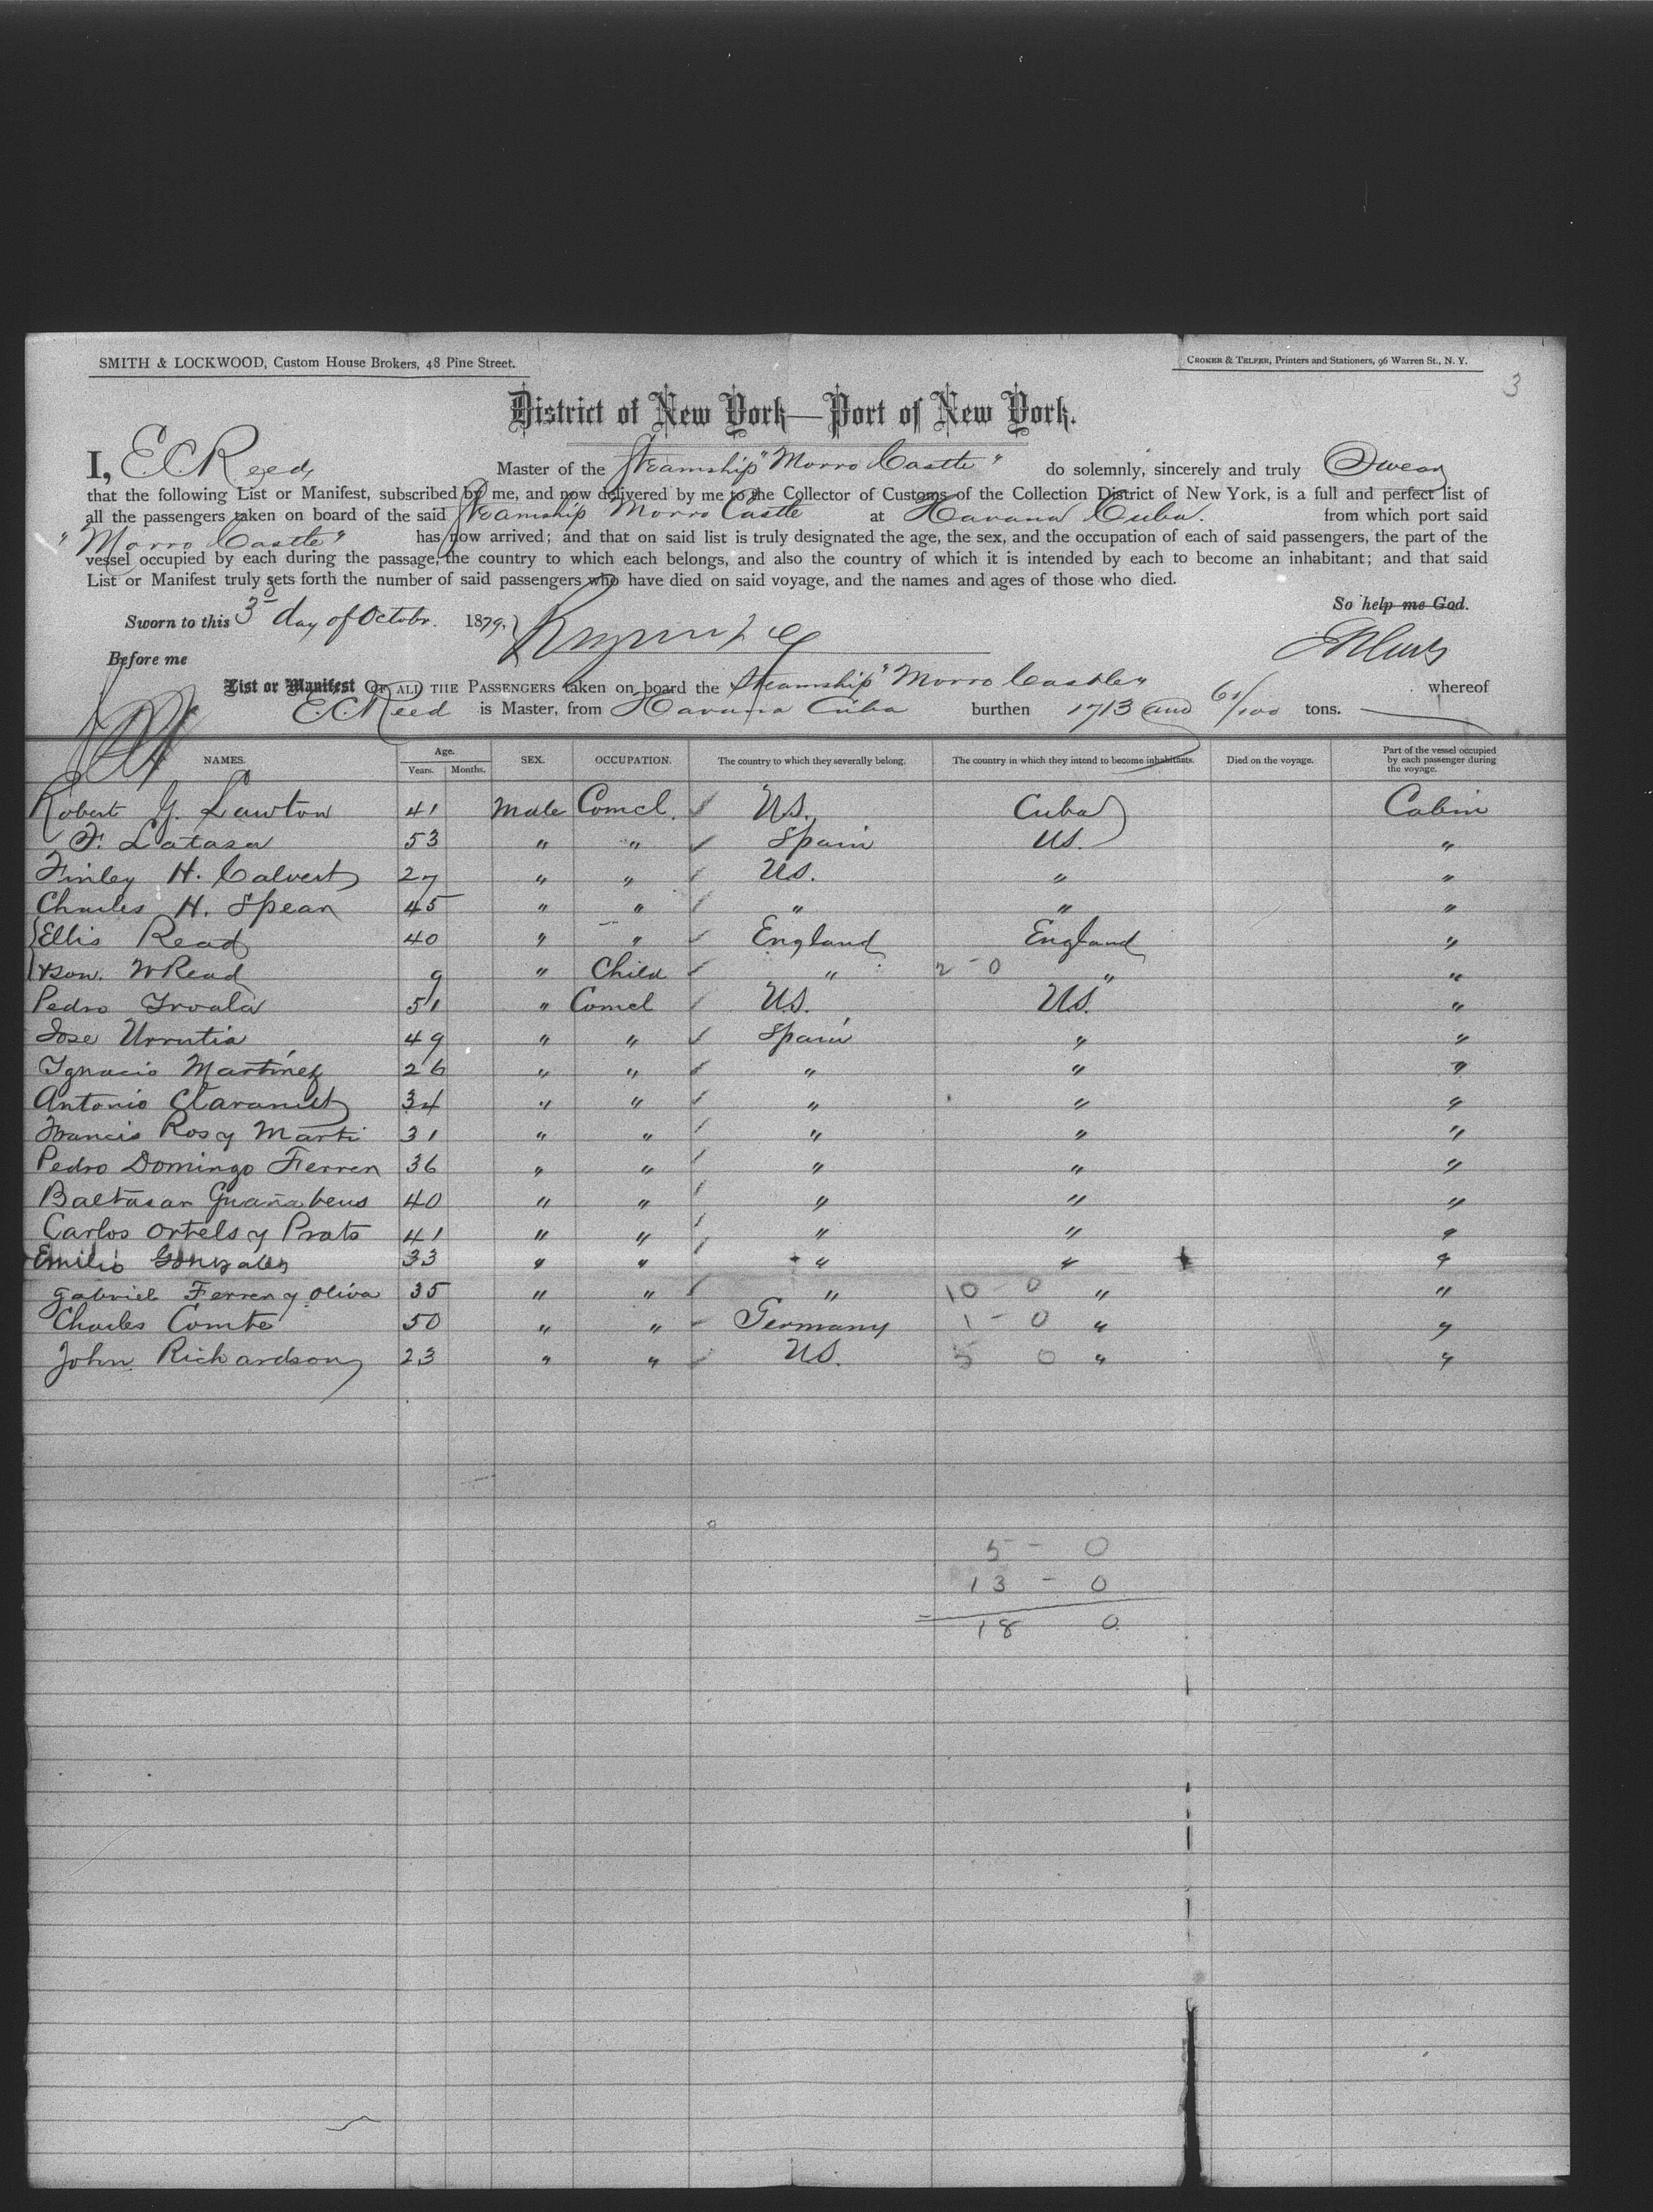 SMITH & LOCKWOOD, Custom House Brokers, 48 Pine Street.
CROKER & TELFER, Printers and Stationers, 96 Warren St., N. Y.
3
District of New York—Port of New York.
I, E.C. Reed, Master of the Steamship "Morro Castle" do solemnly, sincerely and truly Swear
that the following List or Manifest, subscribed by me, and now delivered by me to the Collector of Customs of the Collection District of New York, is a full and perfect list of
all the passengers taken on board of the said Steamship Morro Castle at Havana Cuba. from which port said
"Morro Castle" has now arrived; and that on said list is truly designated the age, the sex, and the occupation of each of said passengers, the part of the
vessel occupied by each during the passage, the country to which each belongs, and also the country of which it is intended by each to become an inhabitant; and that said
List or Manifest truly sets forth the number of said passengers who have died on said voyage, and the names and ages of those who died.
So help me God.
Sworn to this 3 day of Octobr. 1879.
Before me
List or Manifest OF ALL THE PASSENGERS taken on board the Steamship "Morro Castle" whereof
E.C. Reed is Master, from Havana Cuba burthen 1713 and 61/100 tons.
NAMES. Age. Years. Months. SEX. OCCUPATION. The country to which they severally belong. The country in which they intend to become inhabitants. Died on the voyage. Part of the vessel occupied by each passenger during the voyage.
Robert G. Lawton 41 Male Comcl. U.S. Cuba Cabin
F. Latasa 53 " " Spain U.S. "
Finley H. Calvert 27 " " U.S. " "
Charles H. Spear 45 " " " " "
Ellis Read 40 " " England England "
+ son. W Read 9 " Child " 2 - 0 " "
Pedro 51 " Comcl U.S. U.S. "
Jose Urrutia 49 " " Spain " "
Ignacio Martinez 26 " " " " "
Antonio 34 " " " " "
Francis Ros y Marti 31 " " " " "
Pedro Domingo Ferrer 36 " " " " "
Baltasar Guañabens 40 " " " " "
Carlos Ortels y Prats 41 " " " " "
Emilio Gonzales 33 " " " " "
Gabriel Ferrer y Oliva 35 " " " 10 - 0 " "
Charles Comte 50 " " Germany 1 - 0 " "
John Richardson 23 " " U.S. 5 0 " "
5 - 0
13 - 0
18 0